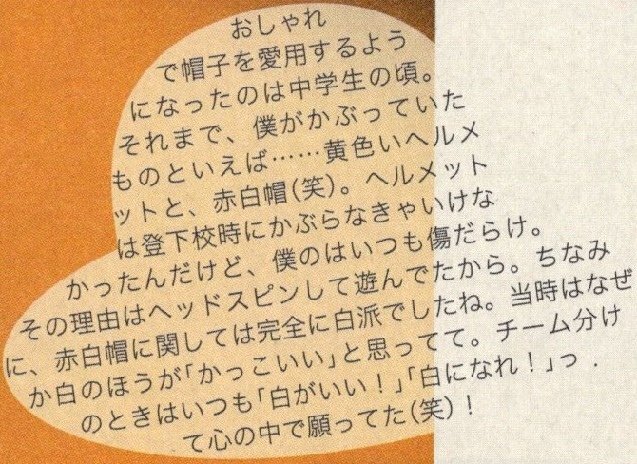 おしゃれ
で帽子を愛用するよう
になったのは中学生の頃。
それまで、僕がかぶっていた
ものといえば……黄色いヘルメ
ットと、赤白帽(笑)。ヘルメット
は登下校時にかぶらなきゃいけな
かったんだけど、僕のはいつも傷だらけ。
その理由はヘッドスピンして遊んでたから。ちなみ
に、赤白帽に関しては完全に白派でしたね。当時はなぜ
か白のほうが「かっこいい」と思ってて。チーム分け
のときはいつも「白がいい！」「白になれ！」っ
て心の中で願ってた(笑)！